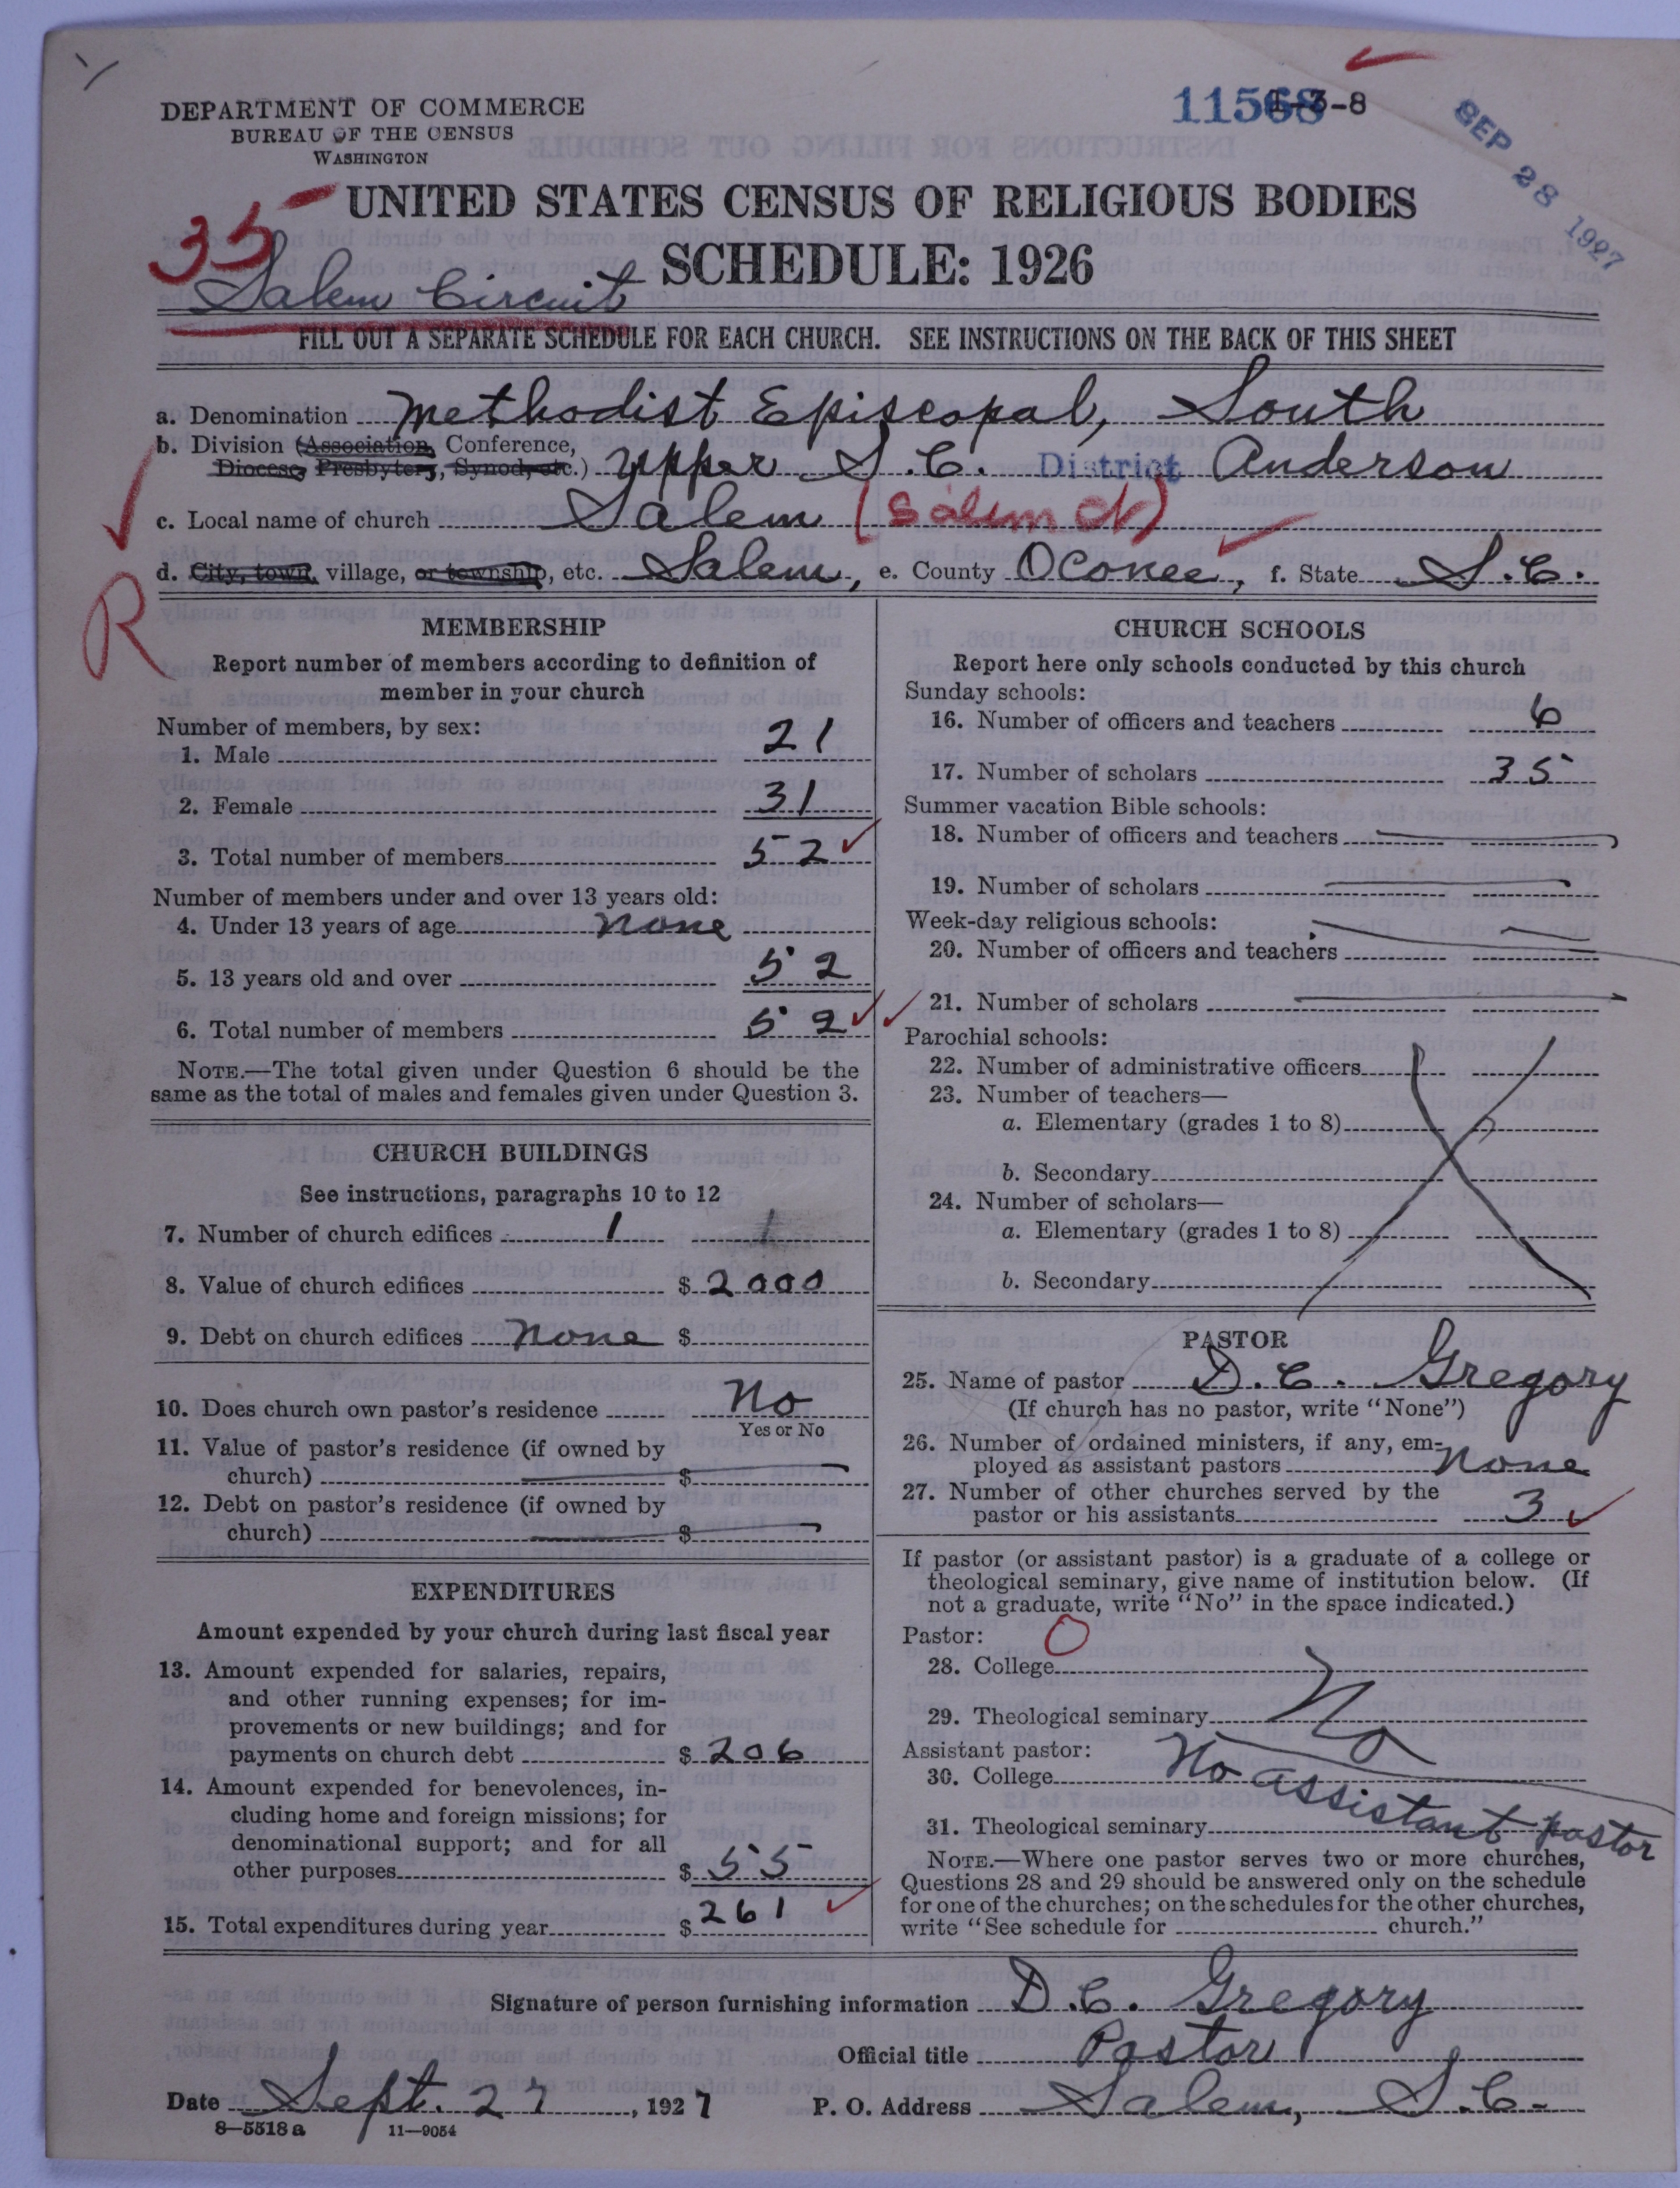 DEPARTMENT OF COMMERCE
BUREAU OF THE CENSUS
WASHINGTON
1-3-8
SEP 28 1927
UNITED STATES CENSUS OF RELIGIOUS BODIES
35
SCHEDULE: 1926
Salem Circuit
FILL OUT A SEPARATE SCHEDULE FOR EACH CHURCH. SEE INSTRUCTIONS ON THE BACK OF THIS SHEET
a. Denomination Methodist Episcopal, South
b. Division (Association, Conference,
Diocese, Presbytery, Synod, etc.) Upper S.C. District Anderson
c. Local name of church Salem (Salem Ct)
d. City, town, village, or township, etc. Salem, e. County Oconee, f. State S.C.
R
MEMBERSHIP
Report number of members according to definition of
member in your church
Number of members, by sex:
1. Male 21
2. Female 31
3. Total number of members 52
Number of members under and over 13 years old:
4. Under 13 years of age none
5. 13 years old and over 52
6. Total number of members 52
NOTE.—The total given under Question 6 should be the
same as the total of males and females given under Question 3.
CHURCH BUILDINGS
See instructions, paragraphs 10 to 12
7. Number of church edifices 1 1
8. Value of church edifices $ 2000
9. Debt on church edifices none $
10. Does church own pastor's residence No
Yes or No
11. Value of pastor's residence (if owned by
church) $
12. Debt on pastor's residence (if owned by
church) $
EXPENDITURES
Amount expended by your church during last fiscal year
13. Amount expended for salaries, repairs,
and other running expenses; for im-
provements or new buildings; and for
payments on church debt $ 206
14. Amount expended for benevolences, in-
cluding home and foreign missions; for
denominational support; and for all
other purposes $ 55
15. Total expenditures during year $ 261
CHURCH SCHOOLS
Report here only schools conducted by this church
Sunday schools:
16. Number of officers and teachers 6
17. Number of scholars 35
Summer vacation Bible schools:
18. Number of officers and teachers
19. Number of scholars
Week-day religious schools:
20. Number of officers and teachers
21. Number of scholars
Parochial schools:
22. Number of administrative officers
23. Number of teachers—
a. Elementary (grades 1 to 8)
b. Secondary
24. Number of scholars—
a. Elementary (grades 1 to 8)
b. Secondary
PASTOR
25. Name of pastor D.C. Gregory
(If church has no pastor, write "None")
26. Number of ordained ministers, if any, em-
ployed as assistant pastors none
27. Number of other churches served by the
pastor or his assistants 3
If pastor (or assistant pastor) is a graduate of a college or
theological seminary, give name of institution below. (If
not a graduate, write "No" in the space indicated.)
Pastor: O
28. College
29. Theological seminary No
Assistant pastor:
30. College No assistant pastor
31. Theological seminary
NOTE.—Where one pastor serves two or more churches,
Questions 28 and 29 should be answered only on the schedule
for one of the churches; on the schedules for the other churches,
write "See schedule for church."
Signature of person furnishing information D.C. Gregory
Official title Pastor
Date Sept. 27, 1927 P. O. Address Salem, S.C.
8—5518a 11—9054